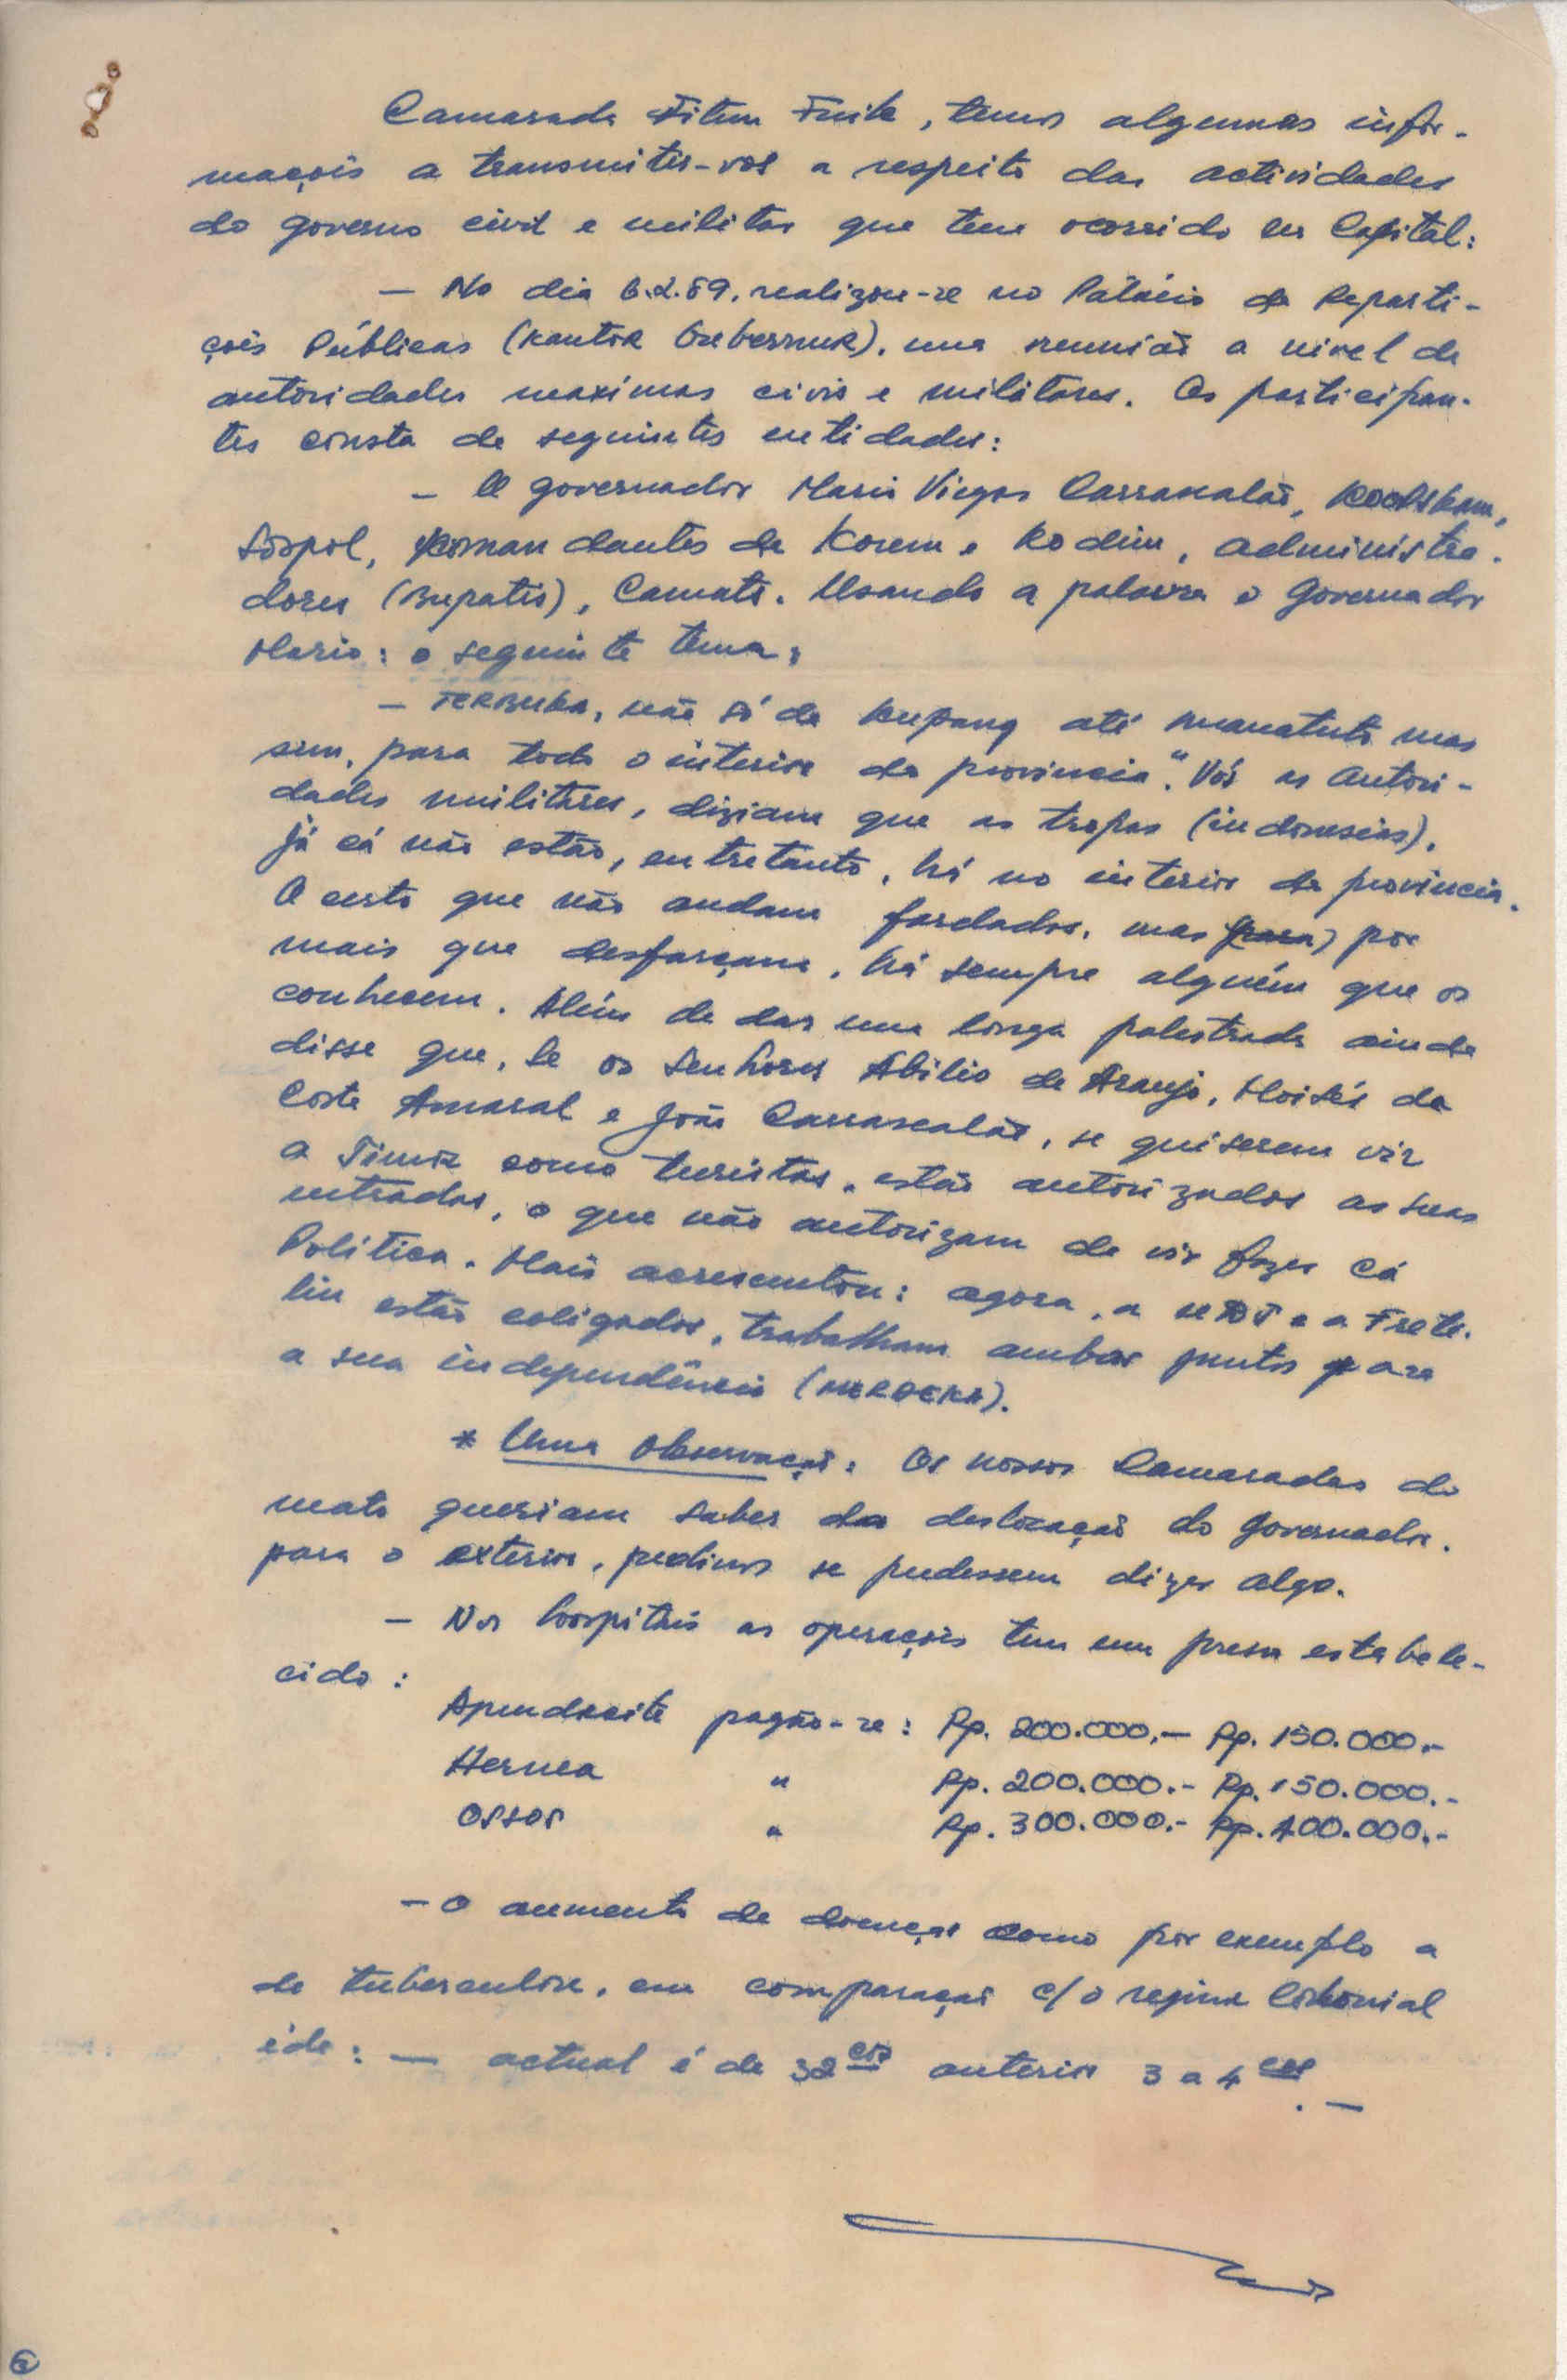 Camarada Fitun Fuik, temos algumas infor-
maçois a transmiter-vos a respeito das actividades
do governo civil e militar que tem ocorrido na Capital:
— No dia 6.2.89. realizou-se no Palácio da Reparti-
çois Públicas (Kantor Gubernur), uma reunião a nivel de
autoridades maximas civis e militares. Os participan-
tes consta de seguintes entidades:
— O governador Mario Viegas Carrascalão,
Sospol, Komandantes de Korem e Kodim, administra-
dores (Bupatis), Camats. Usando a palavra o Governador
Mario: o seguinte tema:
— TERBUKA, não só de Kupang até Manatuto mas
sim, para todo o interior da provincia". Vós as Autori-
dades militares, diziam que as tropas (indonesias),
já cá não estão, entretanto, há no interior da provincia.
O certo que não andam fardados, mas (para) por
mais que desfarçam, há sempre alguém que os
conhecem. Além de dar uma longa palestrada ainda
disse que, se os Senhores Abilio de Araujo, Moisés da
Costa Amaral e João Carrascalão, se quiserem vir
a Timor como turistas, estão autorizados as suas
entradas, o que não autorizam de vir fazer cá
Politica. Mais acrescentou: agora, a UDT e a Freti-
lin estão coligados, trabalham ambos juntos para
a sua independência (MERDEKA).
* Uma Observaçaõ: Os nossos Camaradas do
mato queriam saber da deslocaçaõ do governador.
para o exterior, pedimos se pudessem dizer algo.
— Nos hospitais as operaçois tem um preso estabele-
cido:
Apendicite pagão-se: Rp. 200.000,— Rp. 150.000,-
Hernea " Rp. 200.000.- Rp. 150.000.-
Ossos " Rp. 300.000.- Rp. 400.000.-
— O aumento de doenças como por exemplo a
de tuberculose, em comparaçaõ c/ o regime Colonial
é de: — actual é de 32 cos anterior 3 a 4 cos . —